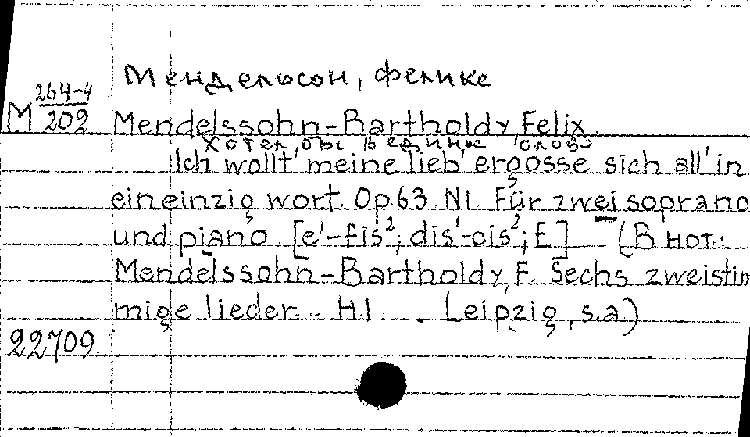 Мендельсон, Феликс
М 264-4/202
Mendelssohn-Bartholdy, Felix.
Хотел бы в единое слово
Ich wollt' meine lieb' ergosse sich all' in
ein einzig wort. Op.63 N1. Für zwei soprano
und piano. [e'-fis²; dis'-cis²; E] – (В нот.:
Mendelssohn-Bartholdy, F. Sechs zweistim
mige lieder. - H.1. . Leipzig, s.a.)
22709